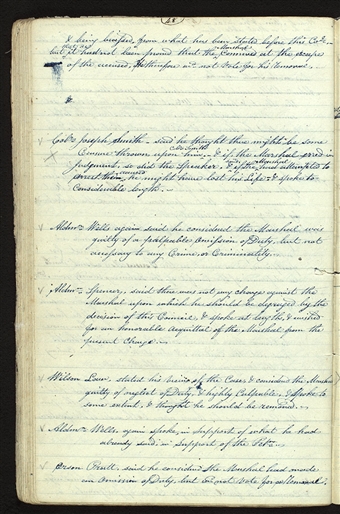 & being satisfied, from what has been stated before this Co.
but it had not been proved that the Marshal connived at the escape
of the accused, & therefore co.d not Vote for his removal.
Col.o Joseph Smith - said he thought there might be some
Censure thrown upon him, - & if the Marshal erred in
judgment, so did the Speaker, & if the Marshal had attempted to
arrest them, he might have lost his Life - & spoke to
Considerable length. -
Aldm.n Wells again said he considered the Marshal was
guilty of a palpable omission of Duty, but not
accessary to any Crime, or Criminality. -
Aldm.n Spencer, said there was not any charge against the
Marshal upon which he should be deprived by the
decision of this Council, & spoke at length, & wished
for an honorable acquittal of the Marshal from the
present Charge. -
Wilson Law, stated his views of the Case, & considered the Marshal
guilty of neglect of Duty, & highly Culpable, & spoke to
some extent, & thought he should be removed. -
Aldm.n Wells again spoke, in support of what he had
already said in support of the Pet.n -
Orson Pratt, said he considered the Marshal had made
an Omission of Duty, but co.d not Vote for a Removal.